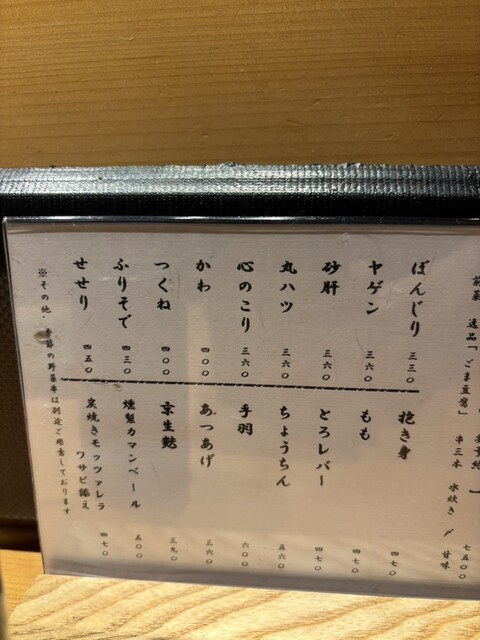 前菜 逸品「ごま豆腐」 串三本 水炊き 〆 甘味 七五〇〇
ぼんじり 三三〇
ヤゲン 三六〇
砂肝 三六〇
丸ハツ 三六〇
心のこり 三六〇
かわ 四〇〇
つくね 四〇〇
ふりそで 四三〇
せせり 四五〇
抱き身 四七〇
もも 四七〇
とろレバー 四七〇
ちょうちん 五六〇
手羽 六〇〇
あつあげ 三六〇
京生麩 三九〇
燻製カマンベール 五〇〇
炭焼きモッツァレラ
ワサビ添え 四七〇
※その他、季節の野菜串は別途ご用意しております